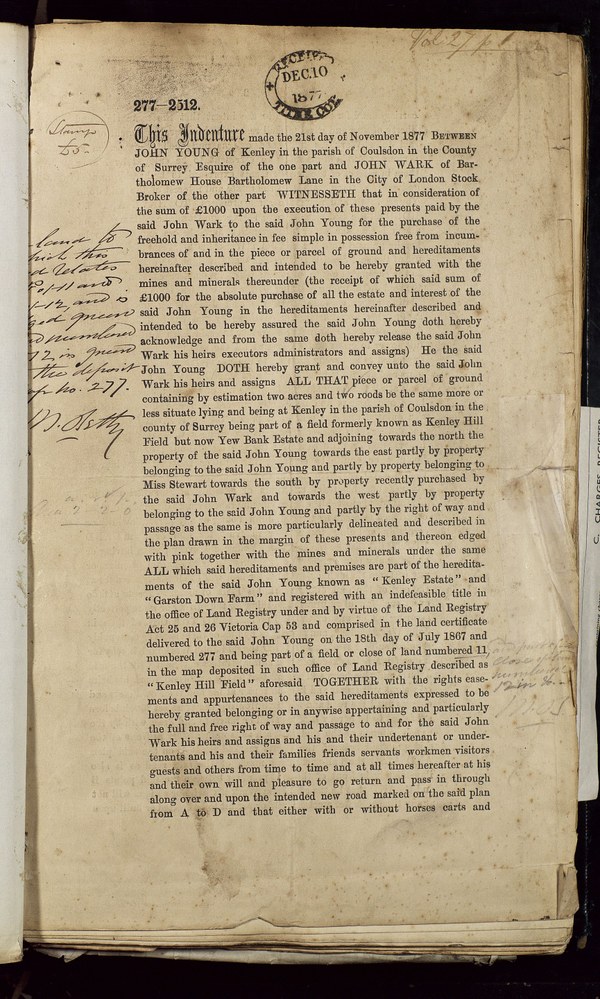 Vol 277 p 1
RECEIVED
DEC. 10
1877
277—2512.
Stamp
£5
This Indenture made the 21st day of November 1877 BETWEEN
JOHN YOUNG of Kenley in the parish of Coulsdon in the County
of Surrey Esquire of the one part and JOHN WARK of Bar-
tholomew House Bartholomew Lane in the City of London Stock
Broker of the other part WITNESSETH that in consideration of
the sum of £1000 upon the execution of these presents paid by the
said John Wark to the said John Young for the purchase of the
freehold and inheritance in fee simple in possession free from incum-
brances of and in the piece or parcel of ground and hereditaments
hereinafter described and intended to be hereby granted with the
mines and minerals thereunder (the receipt of which said sum of
£1000 for the absolute purchase of all the estate and interest of the
said John Young in the hereditaments hereinafter described and
intended to be hereby assured the said John Young doth hereby
acknowledge and from the same doth hereby release the said John
Wark his heirs executors administrators and assigns) He the said
John Young DOTH hereby grant and convey unto the said John
Wark his heirs and assigns ALL THAT piece or parcel of ground
containing by estimation two acres and two roods be the same more or
less situate lying and being at Kenley in the parish of Coulsdon in the
county of Surrey being part of a field formerly known as Kenley Hill
Field but now Yew Bank Estate and adjoining towards the north the
property of the said John Young towards the east partly by property
belonging to the said John Young and partly by property belonging to
Miss Stewart towards the south by property recently purchased by
the said John Wark and towards the west partly by property
belonging to the said John Young and partly by the right of way and
passage as the same is more particularly delineated and described in
the plan drawn in the margin of these presents and thereon edged
with pink together with the mines and minerals under the same
ALL which said hereditaments and premises are part of the heredita-
ments of the said John Young known as "Kenley Estate" and
"Garston Down Farm" and registered with an indefeasible title in
the office of Land Registry under and by virtue of the Land Registry
Act 25 and 26 Victoria Cap 53 and comprised in the land certificate
delivered to the said John Young on the 18th day of July 1867 and
numbered 277 and being part of a field or close of land numbered 11
in the map deposited in such office of Land Registry described as
"Kenley Hill Field" aforesaid TOGETHER with the rights ease-
ments and appurtenances to the said hereditaments expressed to be
hereby granted belonging or in anywise appertaining and particularly
the full and free right of way and passage to and for the said John
Wark his heirs and assigns and his and their undertenant or under-
tenants and his and their families friends servants workmen visitors
guests and others from time to time and at all times hereafter at his
and their own will and pleasure to go return and pass in through
along over and upon the intended new road marked on the said plan
from A to D and that either with or without horses carts and
land to
which this
relates
11 and
12, and is
green
numbered
12 in green
the deposit
no. 277.
C. CHARGES REGISTER